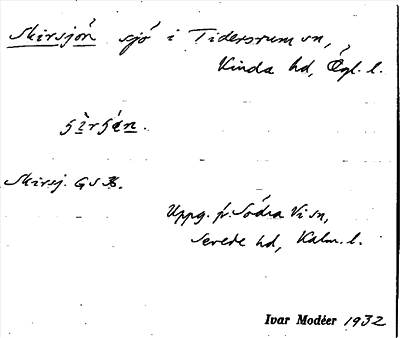 Skirsjön sjö i Tidersrum sn,
Kinda hd, Ögl. l.
Skirsj. GSK.
Uppg. fr. Södra Vi sn,
Sevede hd, Kalm. l.
Ivar Modéer 1932